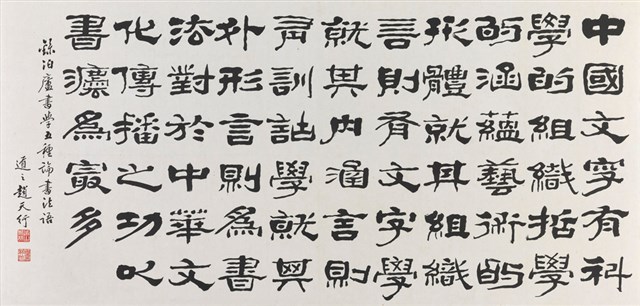 中國文字有科
學的組織哲學
的涵蘊藝術的
形體就其組織
言則有文字學
就其内涵言則
有訓詁學就其
外形言則為書
法對於中華文
化傳播之功以
書灋為最多
泊廬書學五種論書法語
道之趙天行